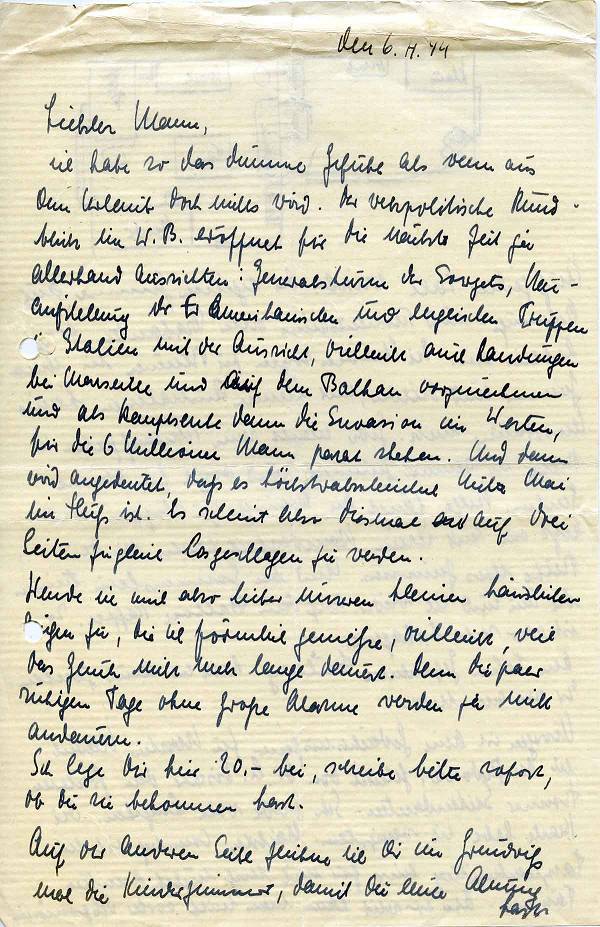 den 6. 4. 44
Liebster Mann,
ich habe so das dumme Gefühl als wenn aus
dem Urlaub doch nichts wird. Der weltpolitische Rund-
blick im W.B. eröffnet für die nächste Zeit ja
allerhand Aussichten: Generalsturm der Sowjets, Neu-
aufstellung der Er Amerikanischen und englischen Truppen
in Italien mit der Aussicht, vielleicht auch Landungen
bei Marseille und auf dem Balkan vorzunehmen
und als Hauptsache dann die Invasion im Westen,
für die 6 Millionen Mann parat stehen. Und dann
wird angedeutet, dass es höchstwahrscheinlich Mitte Mai
im Fluß ist. Es scheint also diesmal auf drei
Seiten zugleich losgeschlagen zu werden.
Wende ich mich also lieber unseren kleinen häuslichen
Dingen zu, die ich förmlich genieße, vielleicht, weil
das Glück nicht mehr lange dauert. Denn die paar
ruhigen Tage ohne große Alarme werden ja nicht
andauern.
Ich lege Dir hier 20.- bei, schreibe bitte sofort,
ob du sie bekommen hast.
Auf der anderen Seite zeichne ich Dir im Grundriß
mal die Kinderzimmer, damit du eine Ahnung
hast